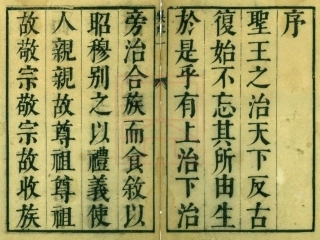 序
聖王之治天下反古
復始不忘其所由生
於是乎有上治下治
旁治合族而食敘以
昭穆别之以禮義使
人親親故尊祖尊祖
故敬宗敬宗故收族